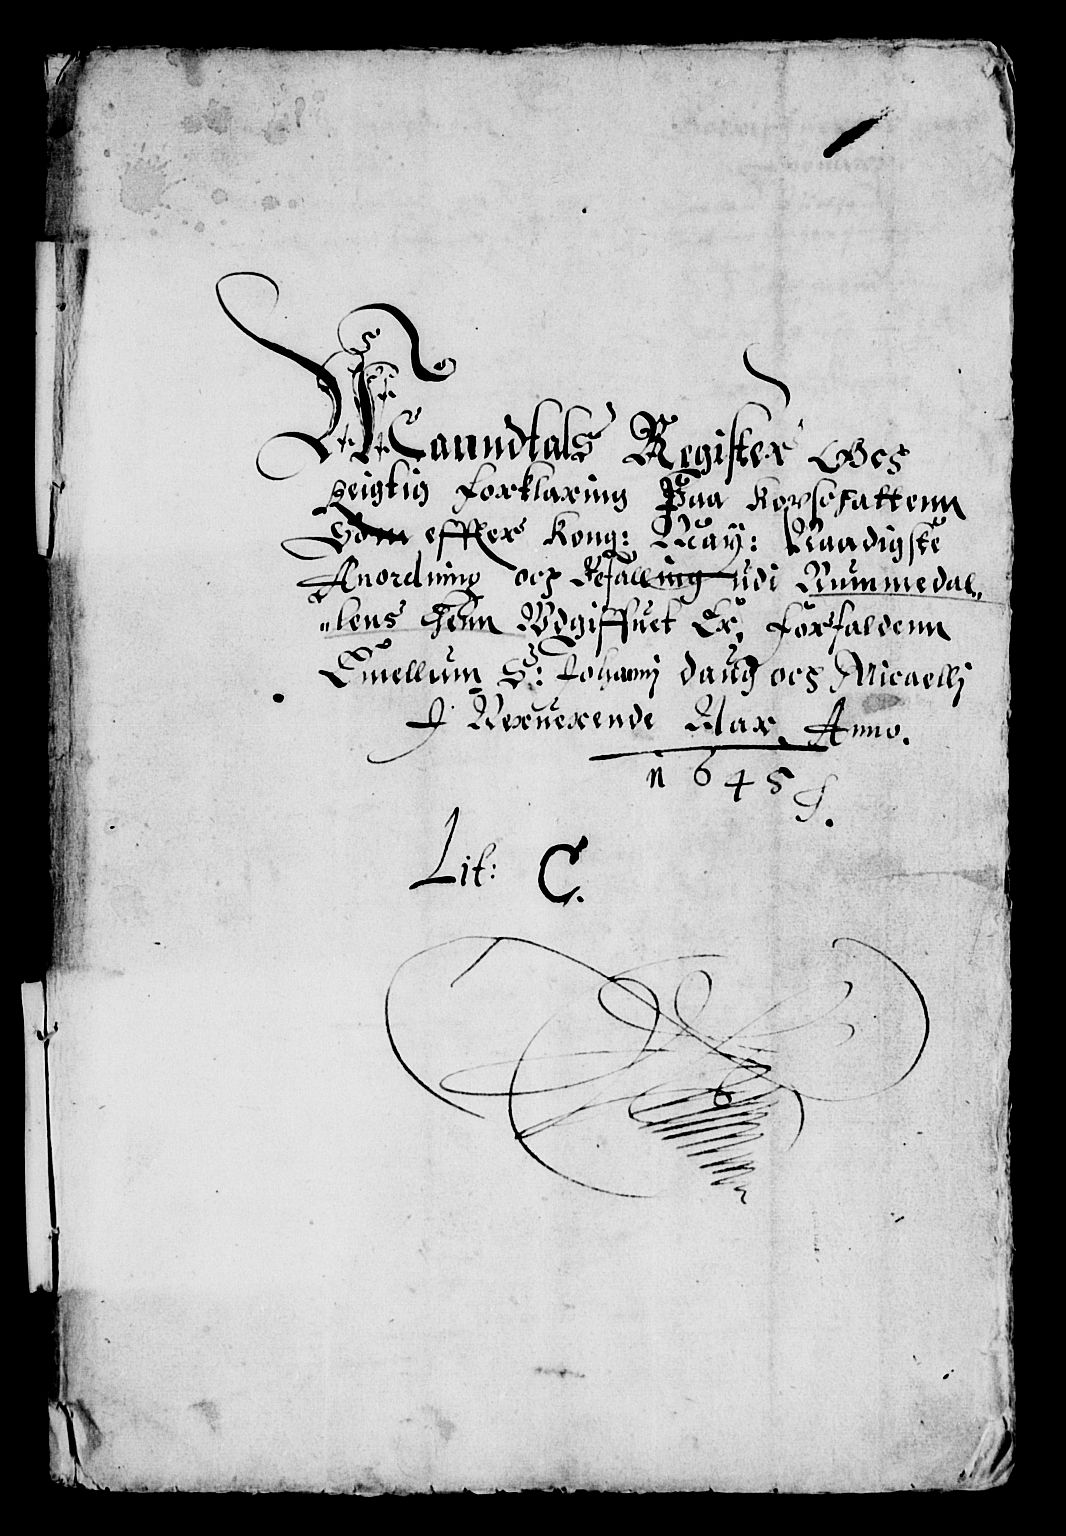 Manndtals Register Oc
Rigtig forklaring Paa Kopschatten
Som effter Kong: May: Naadigste
Anordning och Befalling udi Nummedal„
„lens Lehn Udgiffuet Er, forfalden
Emellum S: Johanni daug och Micaelij
I Neruerende Aar, Anno.
1645
Lit: C.